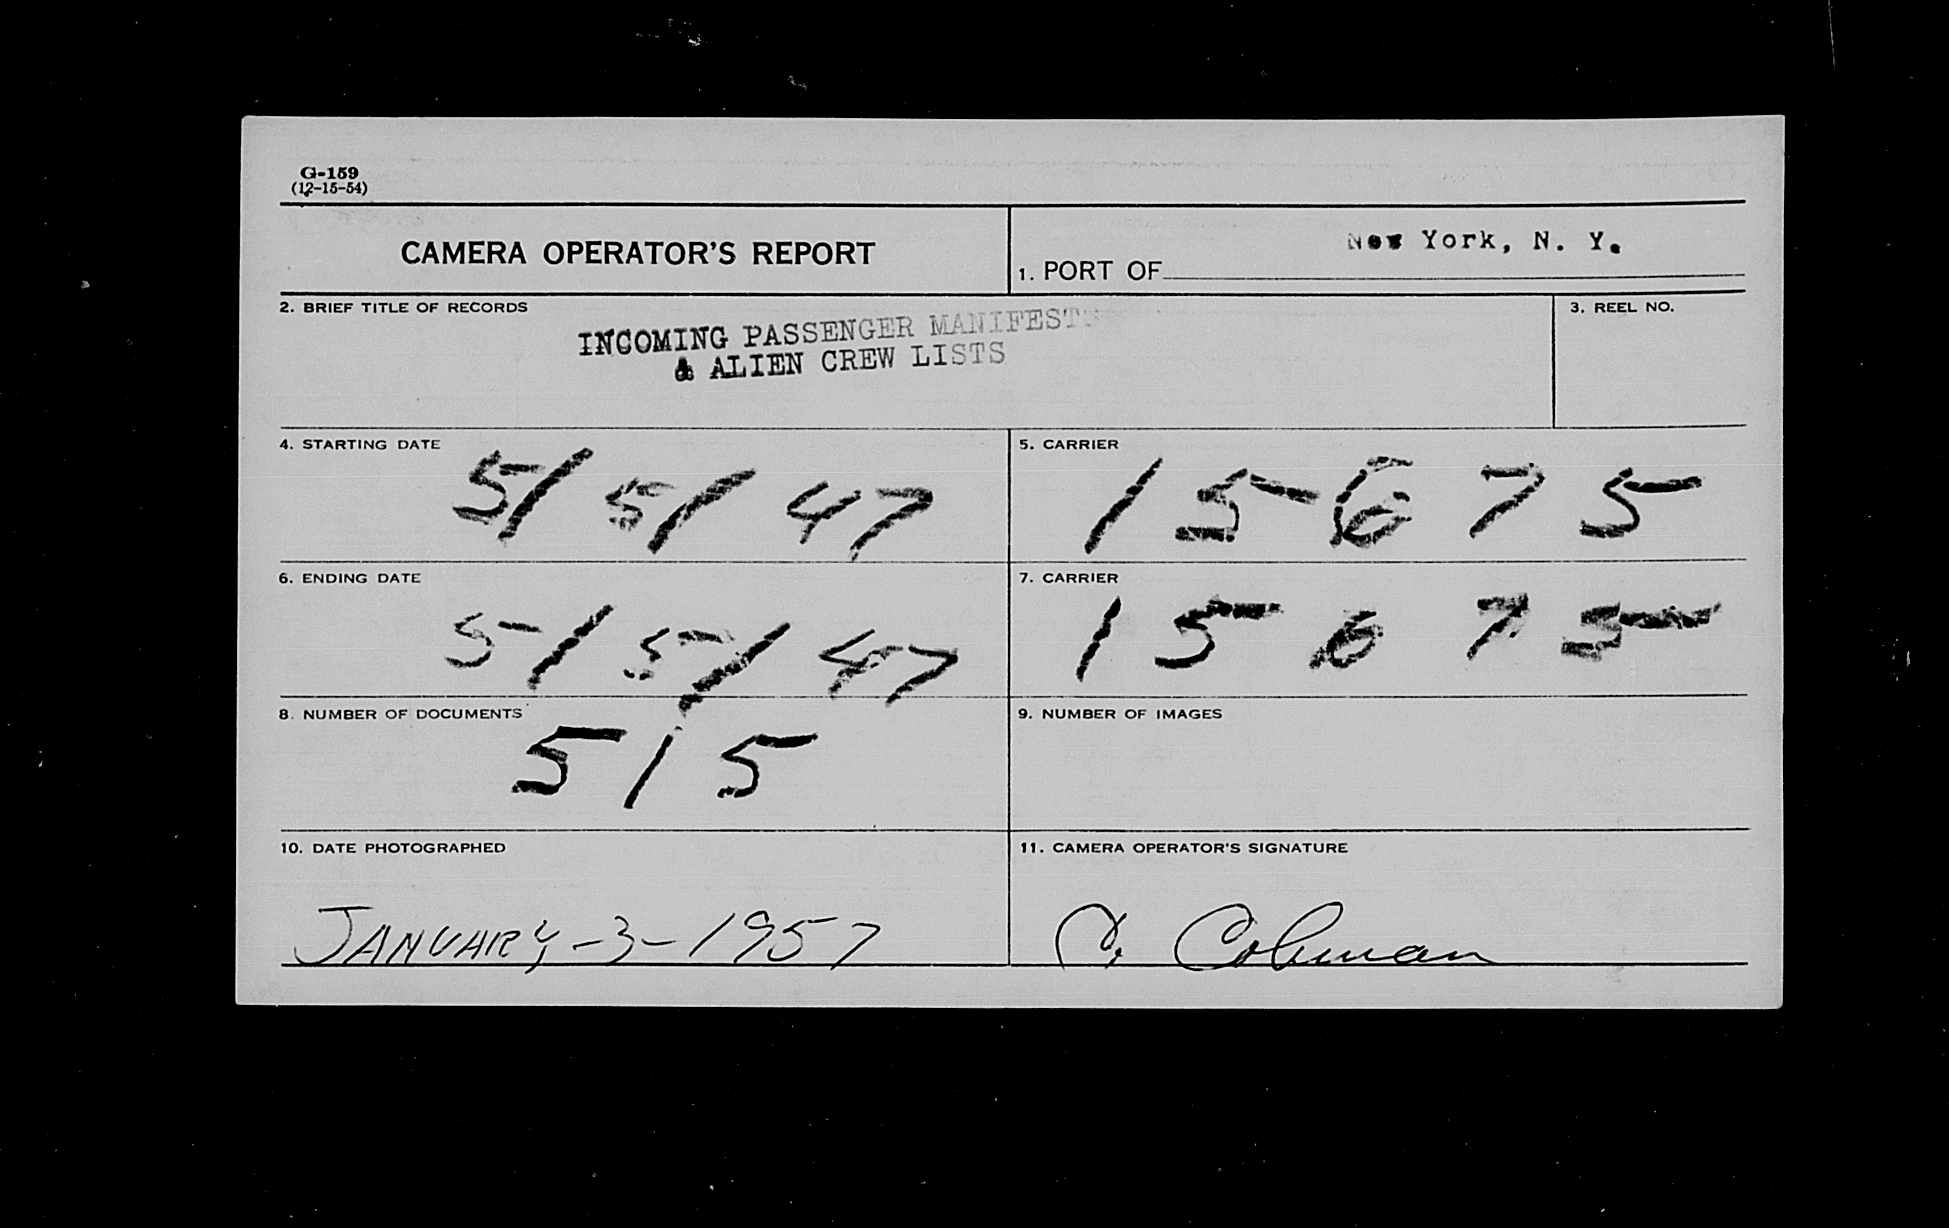 G-159
(12-15-54)
CAMERA OPERATOR'S REPORT
1. PORT OF New York, N. Y.
2. BRIEF TITLE OF RECORDS
INCOMING PASSENGER MANIFESTS
& ALIEN CREW LISTS
3. REEL NO.
4. STARTING DATE
5/5/47
5. CARRIER
15675
6. ENDING DATE
5/5/47
7. CARRIER
15675
8. NUMBER OF DOCUMENTS
515
9. NUMBER OF IMAGES
10. DATE PHOTOGRAPHED
JANUARY-3-1957
11. CAMERA OPERATOR'S SIGNATURE